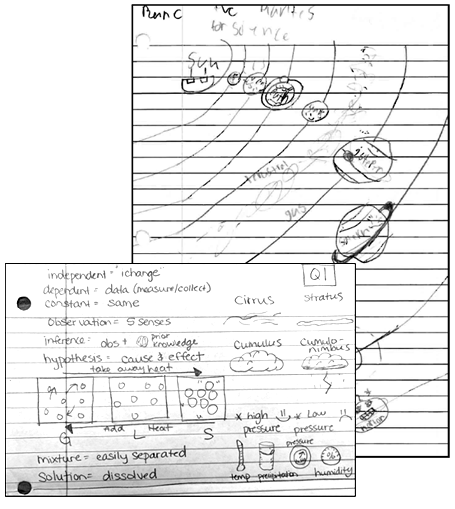 for science
Sun
jupiter
gas
independent = "i change"
dependent = data (measure/collect)
constant = same
Q1
Cirrus
stratus
observation = 5 senses
inference = obs + prior knowledge
Cumulus
Cumulo-
nimbus
hypothesis = cause & effect
take away heat
G
Add
L
Heat
S
* high pressure
* Low pressure
mixture = easily separated
Solution = dissolved
temp
precipitation
pressure
humidity
%